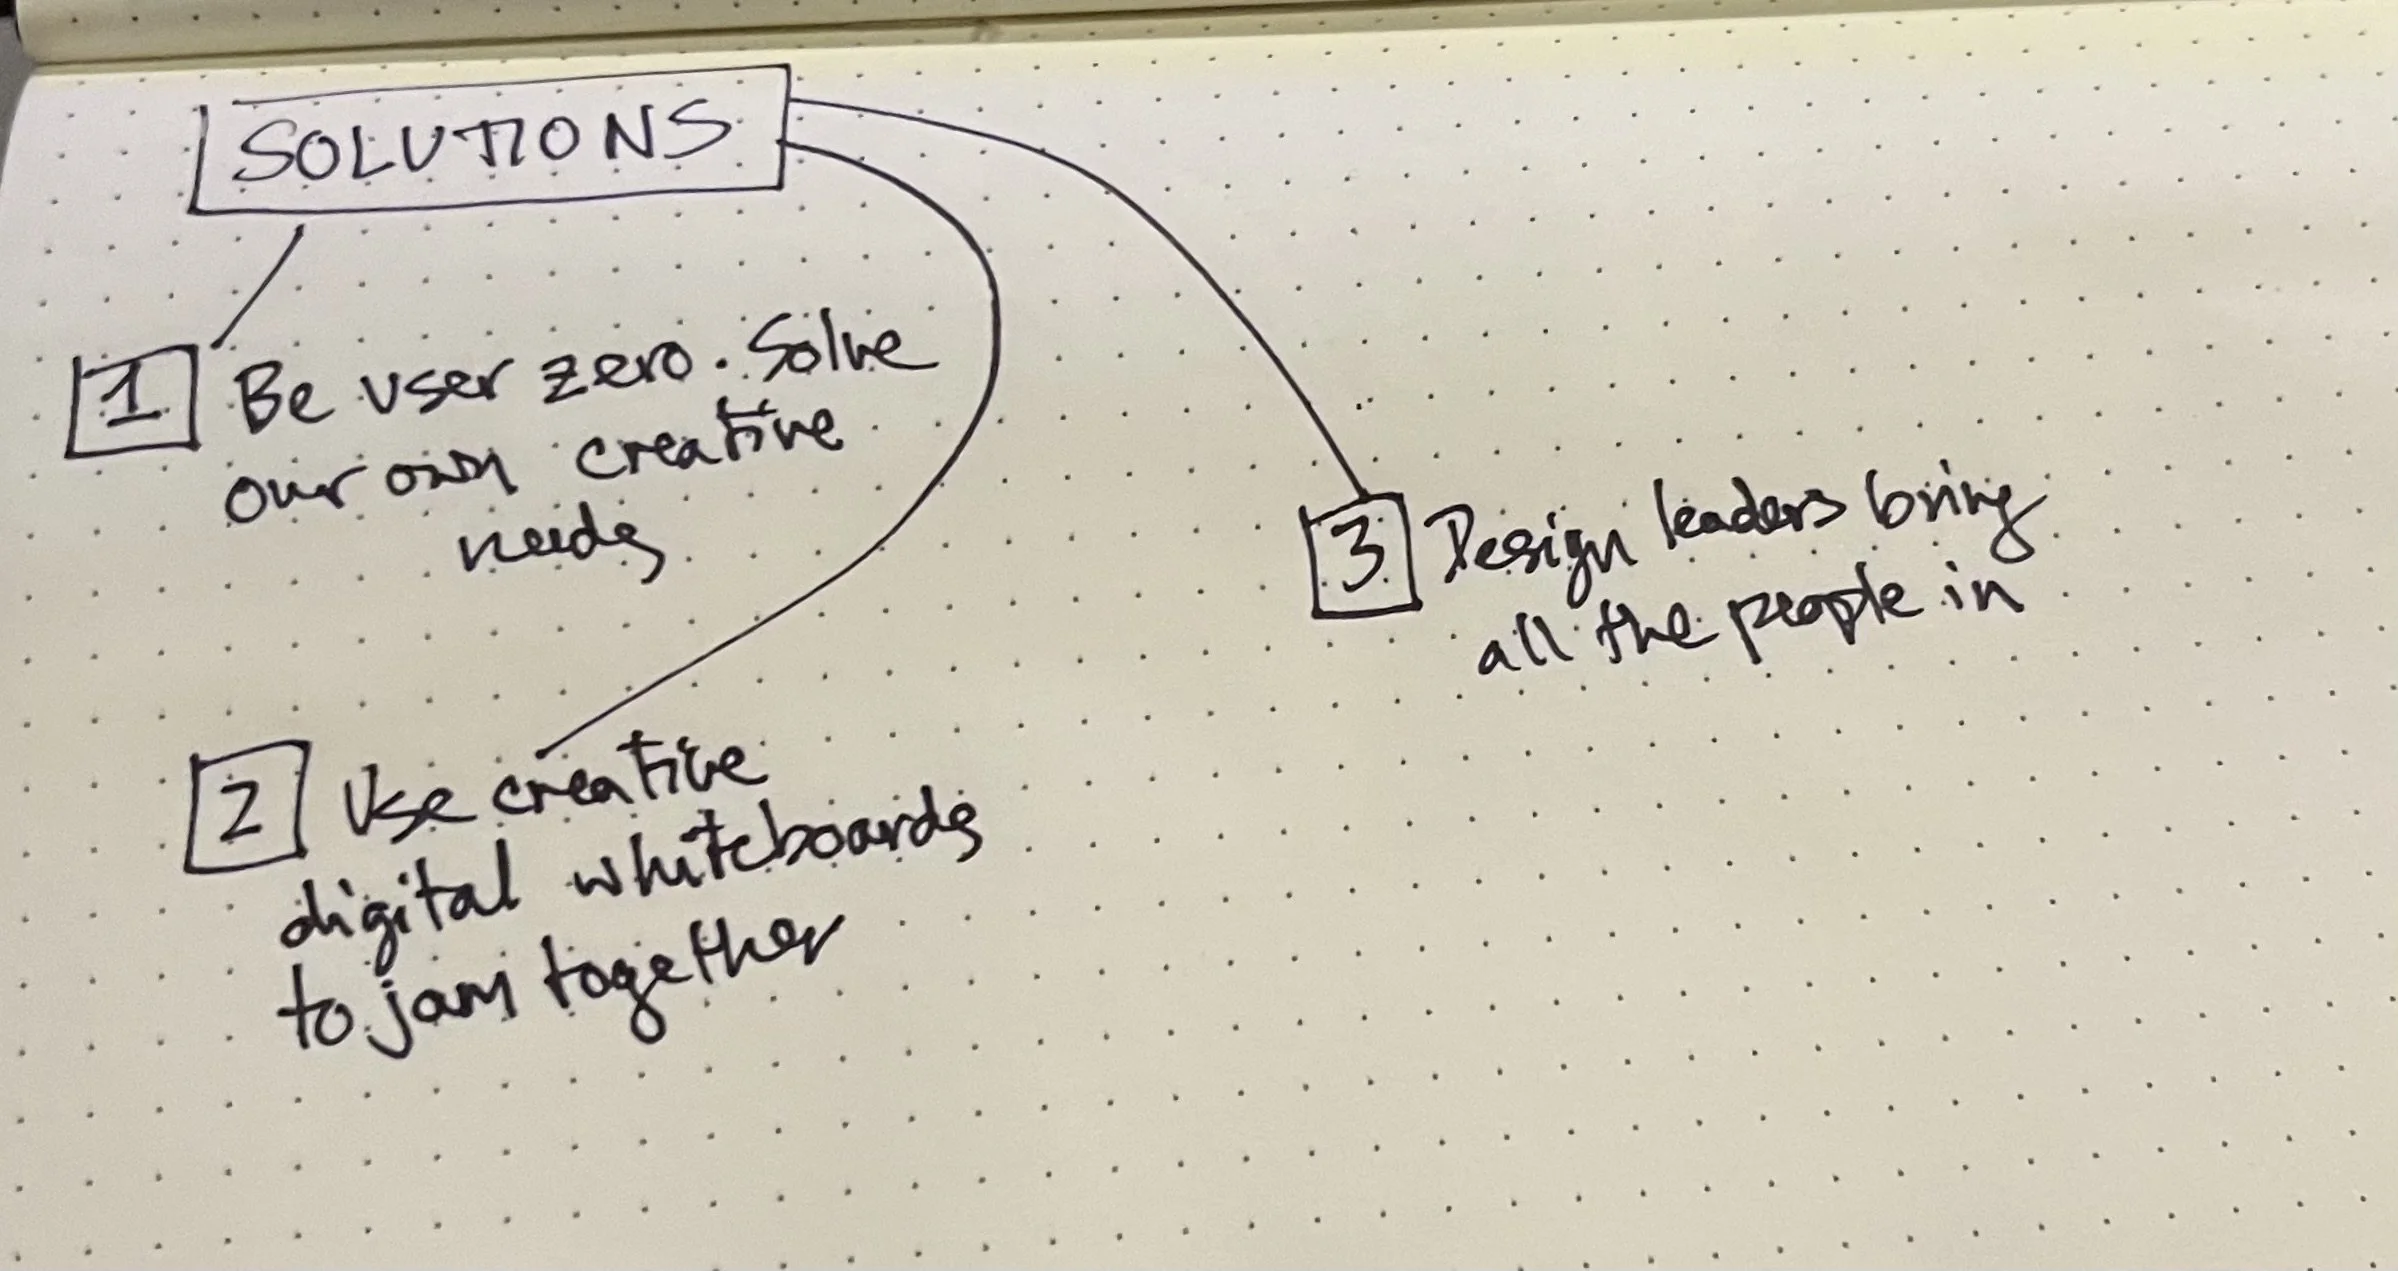 SOLUTIONS
1 Be user zero. Solve
our own creative
needs
2 Use creative
digital whiteboards
to jam together
3 Design leaders bring
all the people in